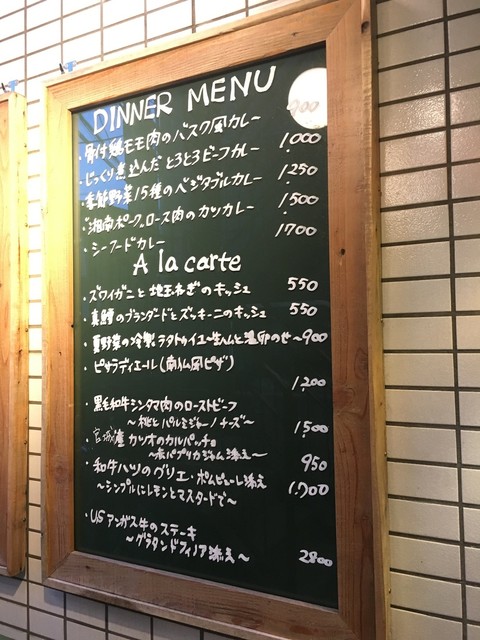 DINNER MENU
・骨付鶏モモ肉のバスク風カレー 900
・じっくり煮込んだとろとろビーフカレー 1,000
・季節野菜15種のベジタブルカレー 1,250
・湘南ポークロース肉のカツカレー 1,500
・シーフードカレー 1,700
A la carte
・ズワイガニと地玉ねぎのキッシュ 550
・真鱈のブランダードとズッキーニのキッシュ 550
・夏野菜の冷製ラタトゥイユ〜生ハムと温卵のせ〜 900
・ピサラディエール(南仏風ピザ)
1,200
・黒毛和牛シンタマ肉のローストビーフ
〜桃とパルミジャーノチーズ〜 1,500
・宮城産カツオのカルパッチョ
〜赤パプリカジャム添え〜 950
・和牛ハツのグリエ・ポムピューレ添え
〜シンプルにレモンとマスタードで〜 1,700
・USアンガス牛のステーキ
〜グラタンドフィノア添え〜 2800